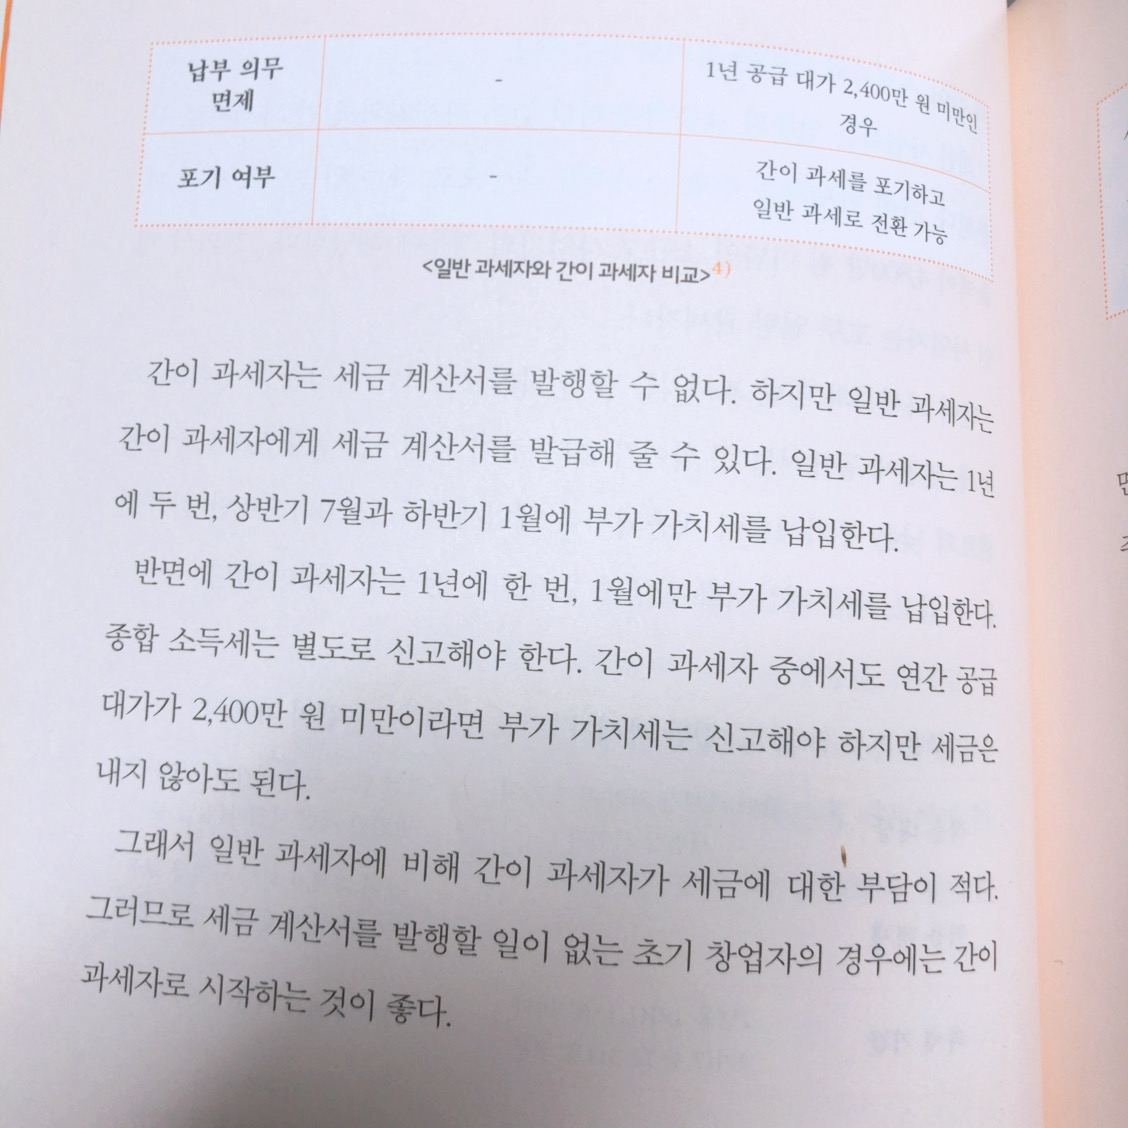 납부 의무
면제
-
1년 공급 대가 2,400만 원 미만인
경우
포기 여부
-
간이 과세를 포기하고
일반 과세로 전환 가능
<일반 과세자와 간이 과세자 비교>4)
간이 과세자는 세금 계산서를 발행할 수 없다. 하지만 일반 과세자는
간이 과세자에게 세금 계산서를 발급해 줄 수 있다. 일반 과세자는 1년
에 두 번, 상반기 7월과 하반기 1월에 부가 가치세를 납입한다.
반면에 간이 과세자는 1년에 한 번, 1월에만 부가 가치세를 납입한다.
종합 소득세는 별도로 신고해야 한다. 간이 과세자 중에서도 연간 공급
대가가 2,400만 원 미만이라면 부가 가치세는 신고해야 하지만 세금은
내지 않아도 된다.
그래서 일반 과세자에 비해 간이 과세자가 세금에 대한 부담이 적다.
그러므로 세금 계산서를 발행할 일이 없는 초기 창업자의 경우에는 간이
과세자로 시작하는 것이 좋다.